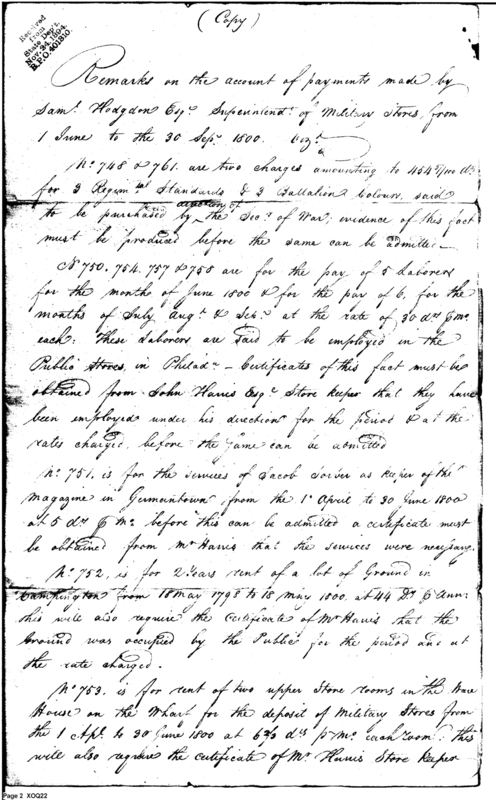 (Copy)
Received
from
State Dep't.
Nov. 24, 1894.
R.P.O. 401310.
Remarks on the account of payments made by
Saml. Hodgdon Esqr. Superintendt. of Military Stores, from
1 June to the 30 Sepr. 1800. Vizt.
No. 748 & 761. are two charges amounting to 454 Ds.
for 3 Regimental Standards & 3 Battalion Colours, said
to be purchased by direction of the Secy. of War; evidence of this fact
must be produced before the same can be admitted—
No. 750. 754. 757 & 758 are for the pay of 5 Laborers
for the months of June 1800 & for the pay of 6, for the
months of July, Augt. & Sepr. at the rate of 30 drs ⅌ mo.
each: These Laborers are said to be employed in the
Public Stores, in Philada. — Certificates of this fact must be
obtained from John Harris Esqr. Store keeper that they have
been employed under his direction for the period & at the
rates charged, before the same can be admitted
No. 751. is for the services of Jacob as keeper of the
Magazine in Germantown from the 1st April to 30 June 1800
at 5 drs ⅌ Mo. before this can be admitted a certificate must
be obtained from Mr. Harris that the services were necessary.
No. 752, is for 2 Years rent of a lot of Ground in
from 18 May 1798 to 18 May 1800, at 44 Ds ⅌ Ann:
this will also require the Certificate of Mr. Harris that the
Ground was occupied by the Public for the period and at
the rate charged.
No. 753. is for rent of two upper Store rooms in the Ware
House on the Wharf for the deposit of Military Stores from
the 1 Apl. to 30 June 1800 at 6 2/3 drs p Mo. each room: this
will also require the certificate of Mr. Harris Store keeper
Page 2 XOQ22